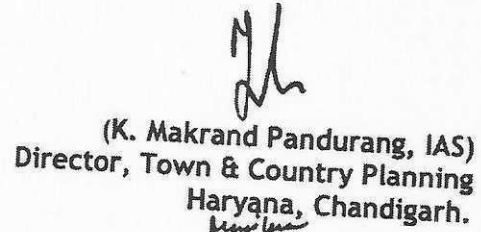 (K. Makrand Pandurang, IAS)
Director, Town & Country Planning
Haryana, Chandigarh.